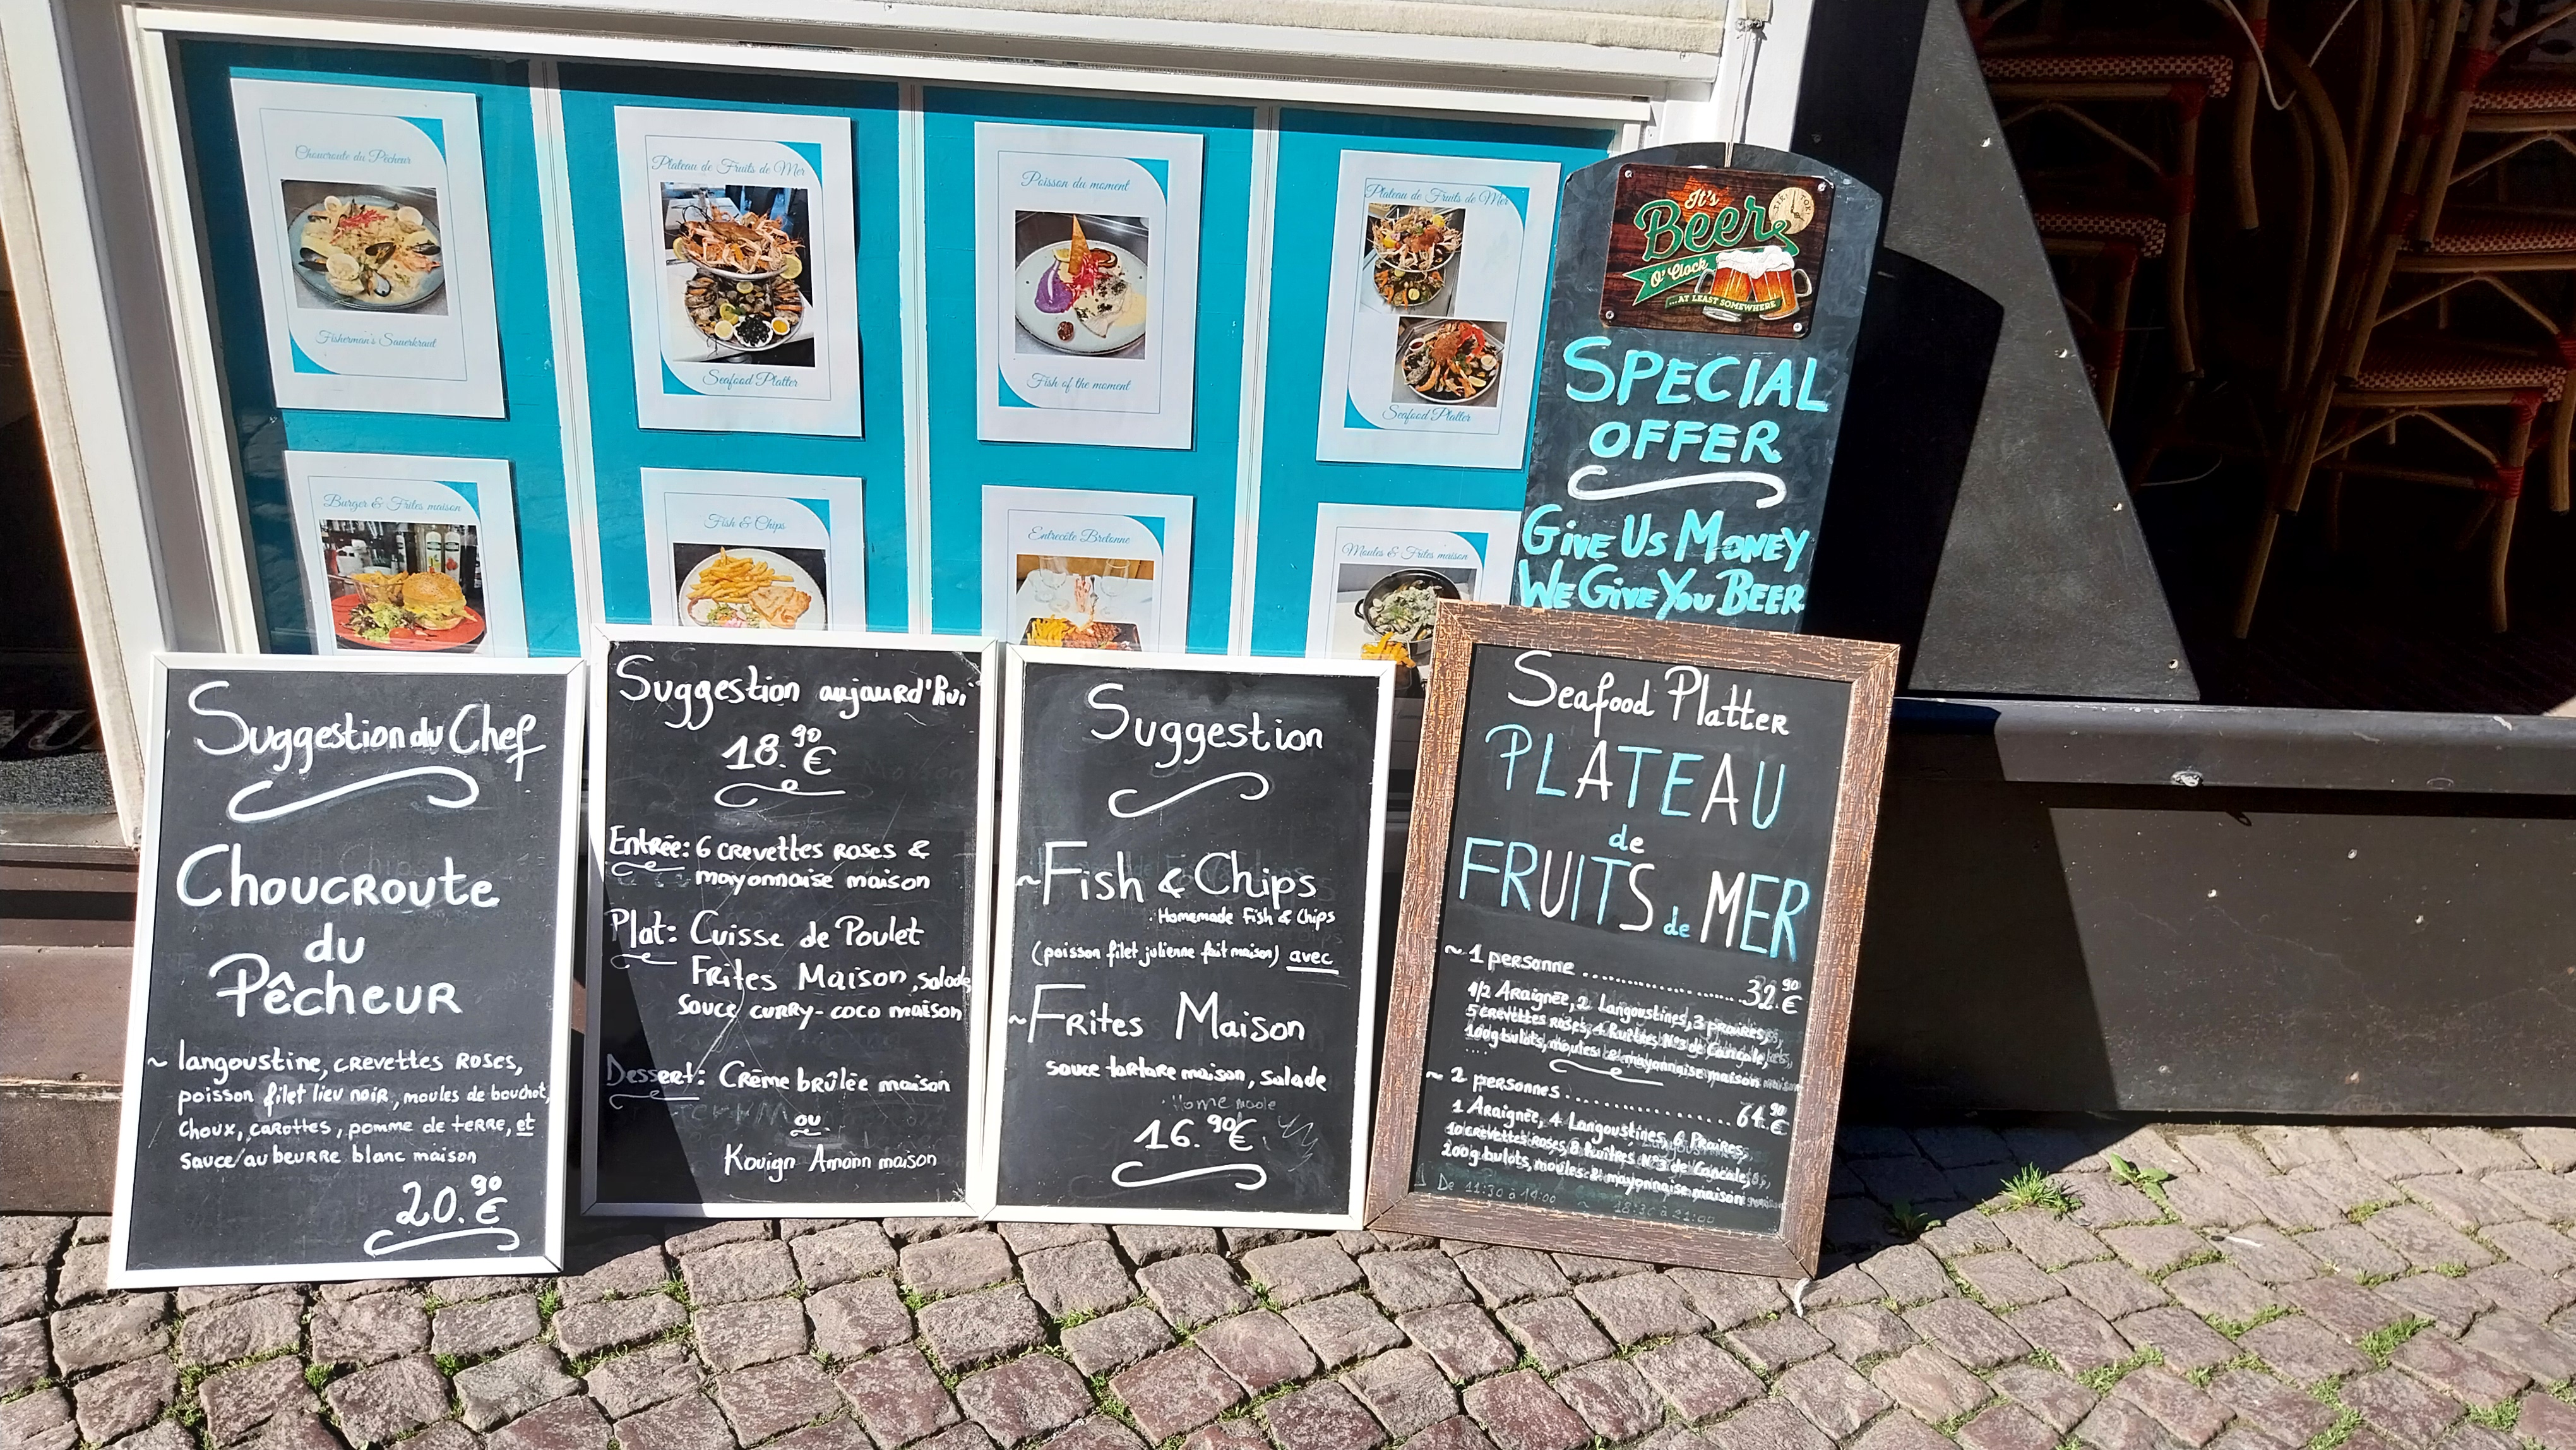 Choucroute du Pêcheur
Fisherman's Sauerkraut
Plateau de Fruits de Mer
Seafood Platter
Poisson du moment
Fish of the moment
Plateau de Fruits de Mer
Seafood Platter
Burger & Frites maison
Fish & Chips
Entrecôte Bretonne
Moules & Frites maison
It's
Beer
O'Clock
...AT LEAST SOMEWHERE
SPECIAL
OFFER
GIVE US MONEY
WE GIVE YOU BEER
Suggestion du Chef
Choucroute
du
Pêcheur
~ langoustine, crevettes roses,
poisson filet lieu noir, moules de bouchot,
choux, carottes, pomme de terre, et
sauce/au beurre blanc maison
20.90€
Suggestion aujourd'hui
18.90€
Entrée: 6 crevettes roses &
mayonnaise maison
Plat: Cuisse de Poulet
Frites Maison, salade
sauce curry-coco maison
Dessert: Crème brûlée maison
ou
Kouign Amann maison
Suggestion
~Fish & Chips
Homemade Fish & Chips
(poisson filet julienne fait maison) avec
~Frites Maison
sauce tartare maison, salade
Home made
16.90€
Seafood Platter
PLATEAU
de
FRUITS de MER
~ 1 personne ........................ 32.90€
1/2 Araignée, 2 Langoustines, 3 praires,
5 crevettes roses, 4 huîtres N°3 de Cancale,
100g bulots, moules & mayonnaise maison
~ 2 personnes ........................ 64.90€
1 Araignée, 4 Langoustines, 6 Praires,
10 crevettes roses, 8 huîtres N°3 de Cancale,
200g bulots, moules & mayonnaise maison
De 11:30 à 14:00 ~ 18:30 à 21:00